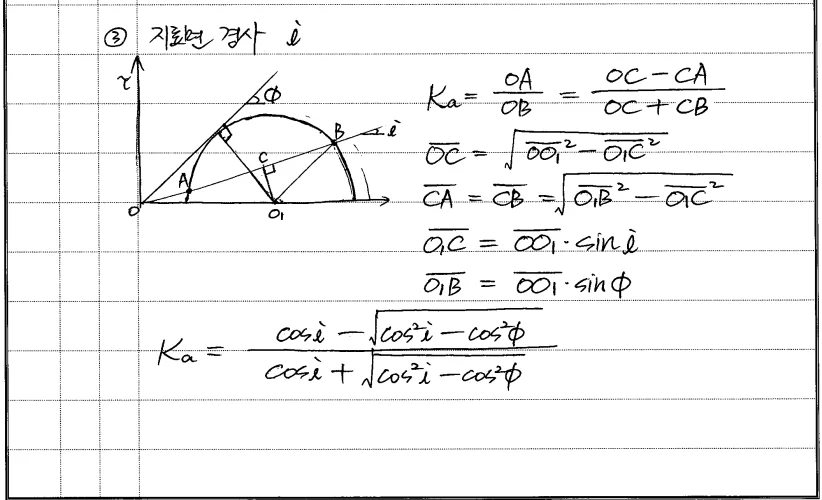 ③ 지표면 경사 i
τ
φ
B
i
C
A
O
O₁
Ka = OA/OB = (OC - CA)/(OC + CB)
O̅C̅ = √(O̅O̅₁² - O̅₁C̅²)
C̅A̅ = C̅B̅ = √(O̅₁B̅² - O̅₁C̅²)
O̅₁C̅ = O̅O̅₁ · sin i
O̅₁B̅ = O̅O̅₁ · sin φ
Ka = (cos i - √(cos²i - cos²φ))/(cos i + √(cos²i - cos²φ))